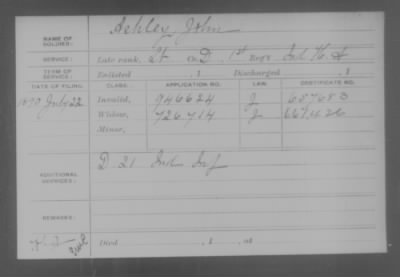 NAME OF SOLDIER: Ashley, John
SERVICE: Late rank, Lt Co. D, 1st Reg't Ind. H. A
TERM OF SERVICE: Enlisted , 1 Discharged , 1
DATE OF FILING. CLASS. APPLICATION NO. LAW. CERTIFICATE NO.
July 22 Invalid, 946624 J 657683
Widow, 726,714 J
Minor,
ADDITIONAL SERVICES: D 21 Ind Inf
REMARKS:
Died , 1 , at